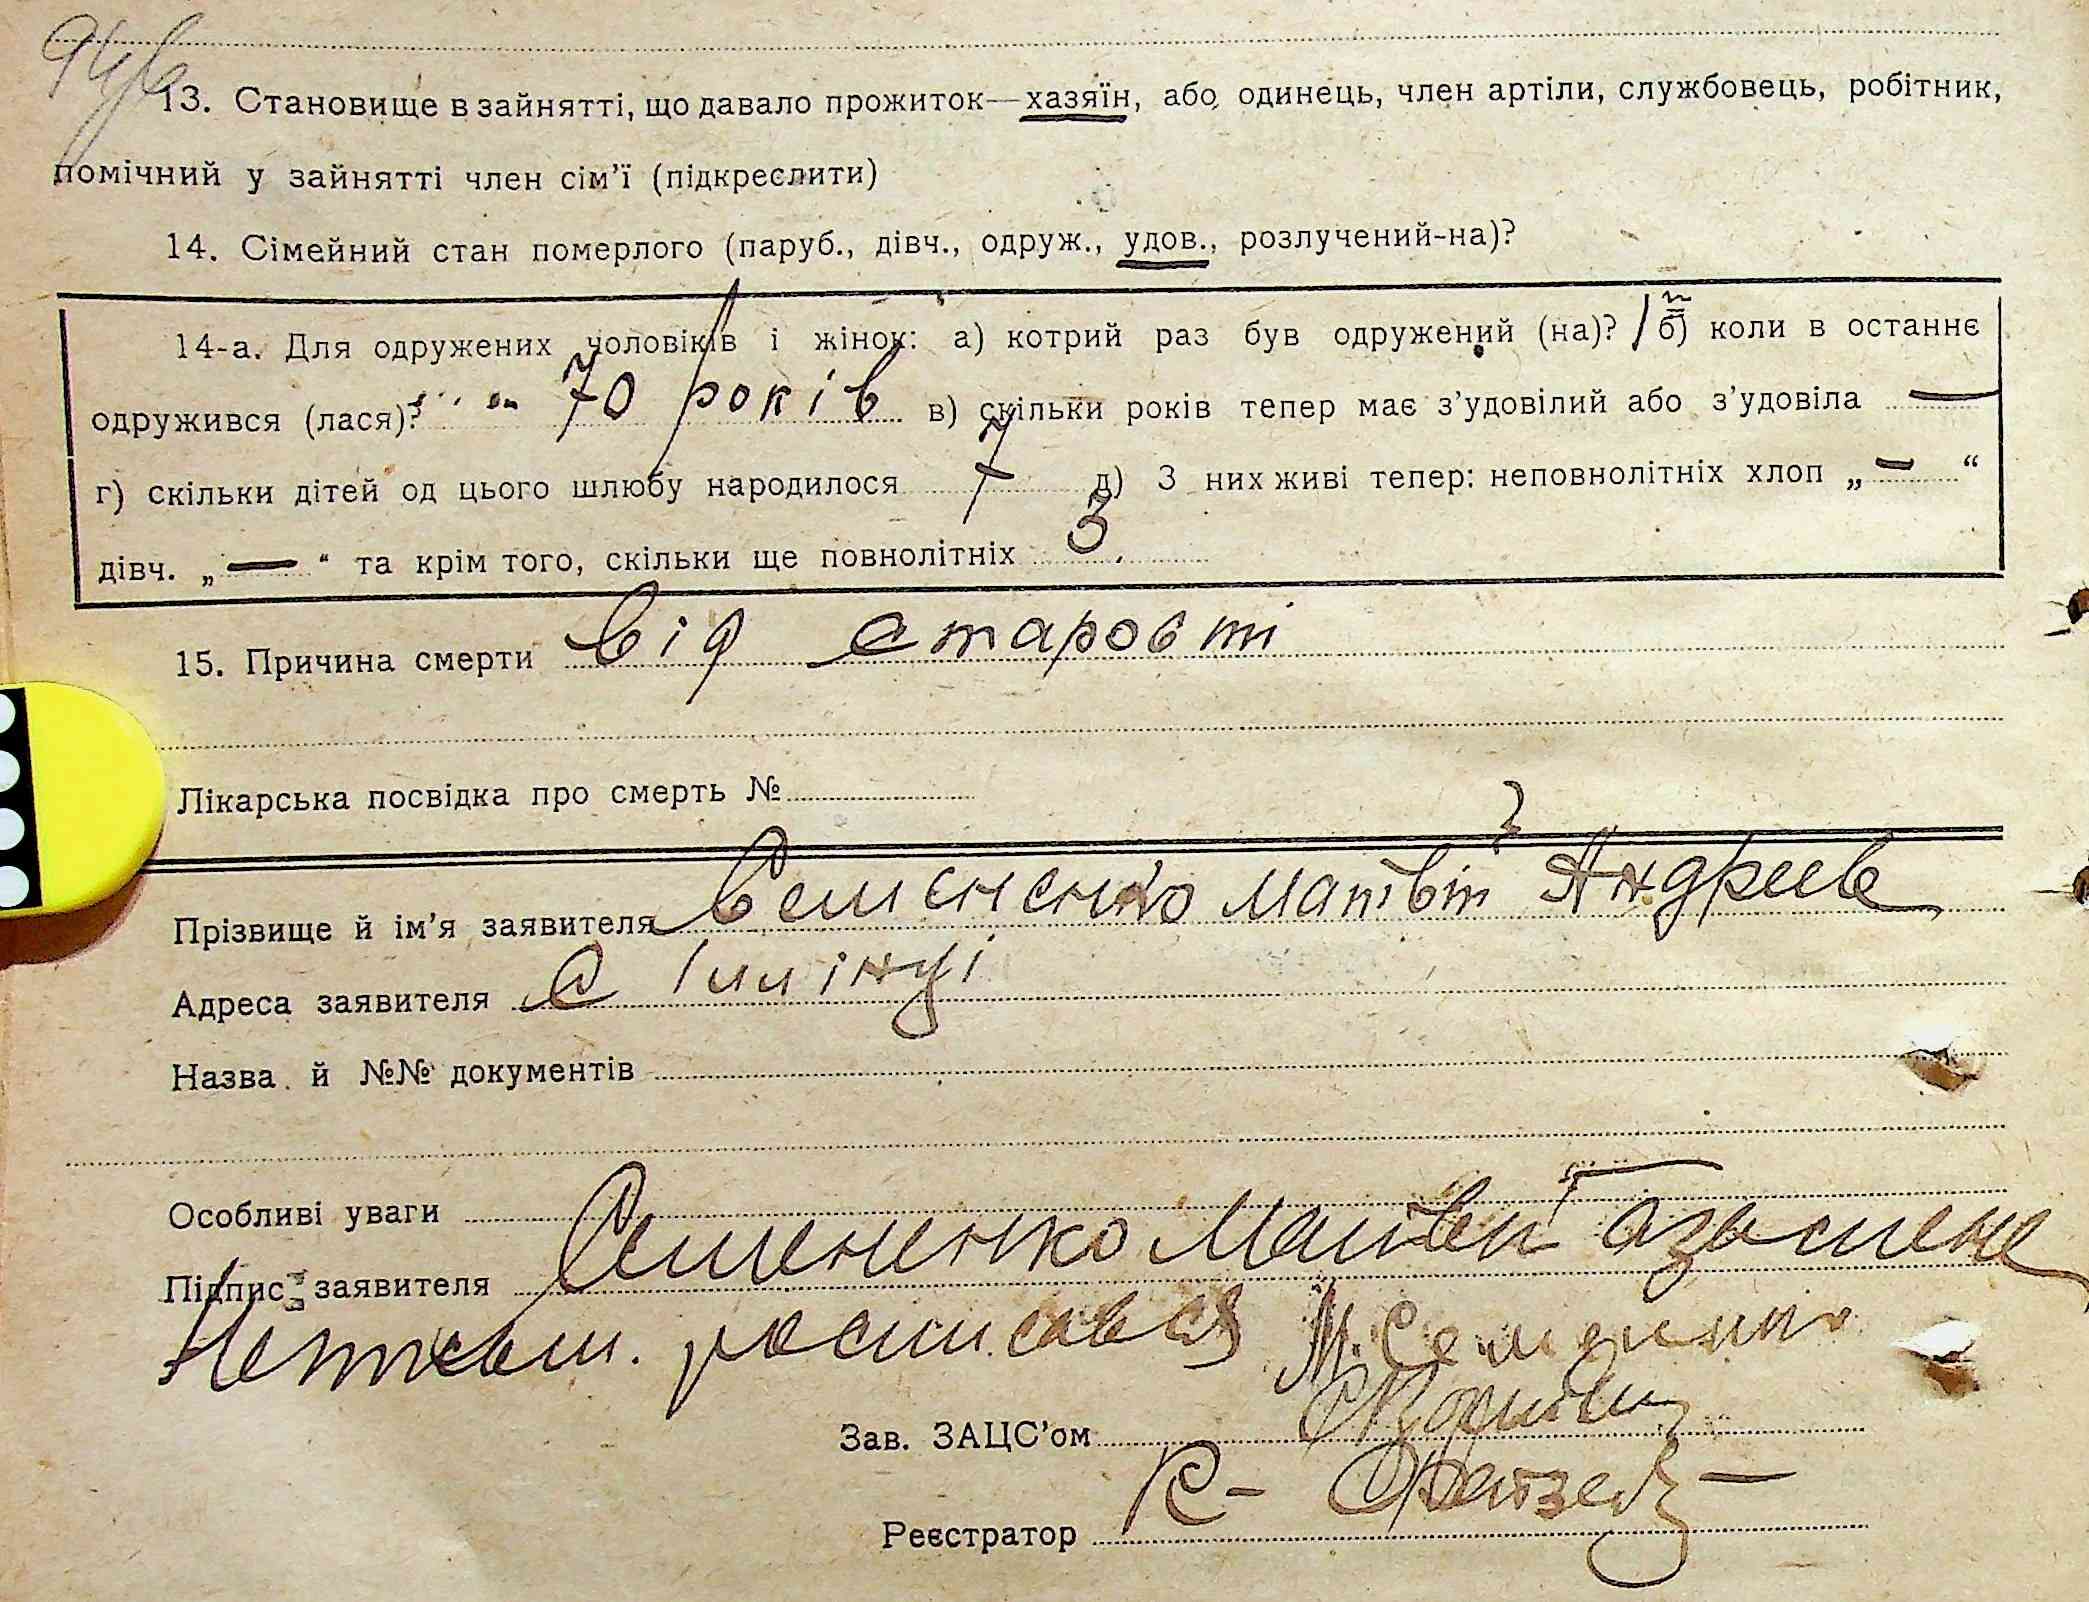 13. Становище в зайнятті, що давало прожиток—хазяїн, або одинець, член артіли, службовець, робітник,
помічний у зайнятті член сім'ї (підкреслити)
14. Сімейний стан померлого (паруб., дівч., одруж., удов., розлучений-на)?
14-а. Для одружених чоловіків і жінок: а) котрий раз був одружений (на)? / б) коли в останнє
одружився (лася)? 70 років в) скільки років тепер має з'удовілий або з'удовіла —
г) скільки дітей од цього шлюбу народилося 7 д) З них живі тепер: неповнолітніх хлоп „ — “
дівч. „ — “ та крім того, скільки ще повнолітніх 3.
15. Причина смерти від старости
Лікарська посвідка про смерть №
Прізвище й ім'я заявителя Семененко Матвій Андриев
Адреса заявителя с Іллінці
Назва й №№ документів
Особливі уваги
Підпис заявителя Семененко Матвей
росписався М. Семененко
Зав. ЗАЦС'ом
Реєстратор